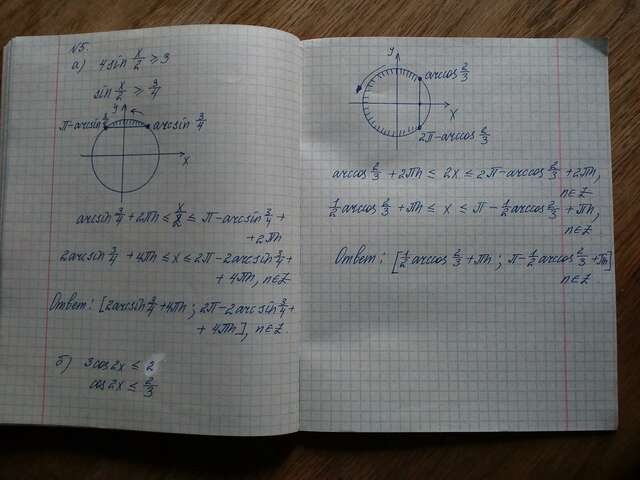 №5.
а) 4sin x/2 ≥ 3
sin x/2 ≥ 3/4
y
π-arcsin 3/4 arcsin 3/4
x
arcsin 3/4 + 2πn ≤ x/2 ≤ π - arcsin 3/4 +
+ 2πn
2arcsin 3/4 + 4πn ≤ x ≤ 2π - 2arcsin 3/4 +
+ 4πn, n∈Z
Ответ: [2arcsin 3/4 + 4πn; 2π - 2arcsin 3/4 +
+ 4πn], n∈Z.
б) 3cos2x ≤ 2
cos2x ≤ 2/3
y
arccos 2/3
x
2π - arccos 2/3
arccos 2/3 + 2πn ≤ 2x ≤ 2π - arccos 2/3 + 2πn,
n∈Z
1/2 arccos 2/3 + πn ≤ x ≤ π - 1/2 arccos 2/3 + πn,
n∈Z
Ответ: [1/2 arccos 2/3 + πn; π - 1/2 arccos 2/3 + πn]
n∈Z.